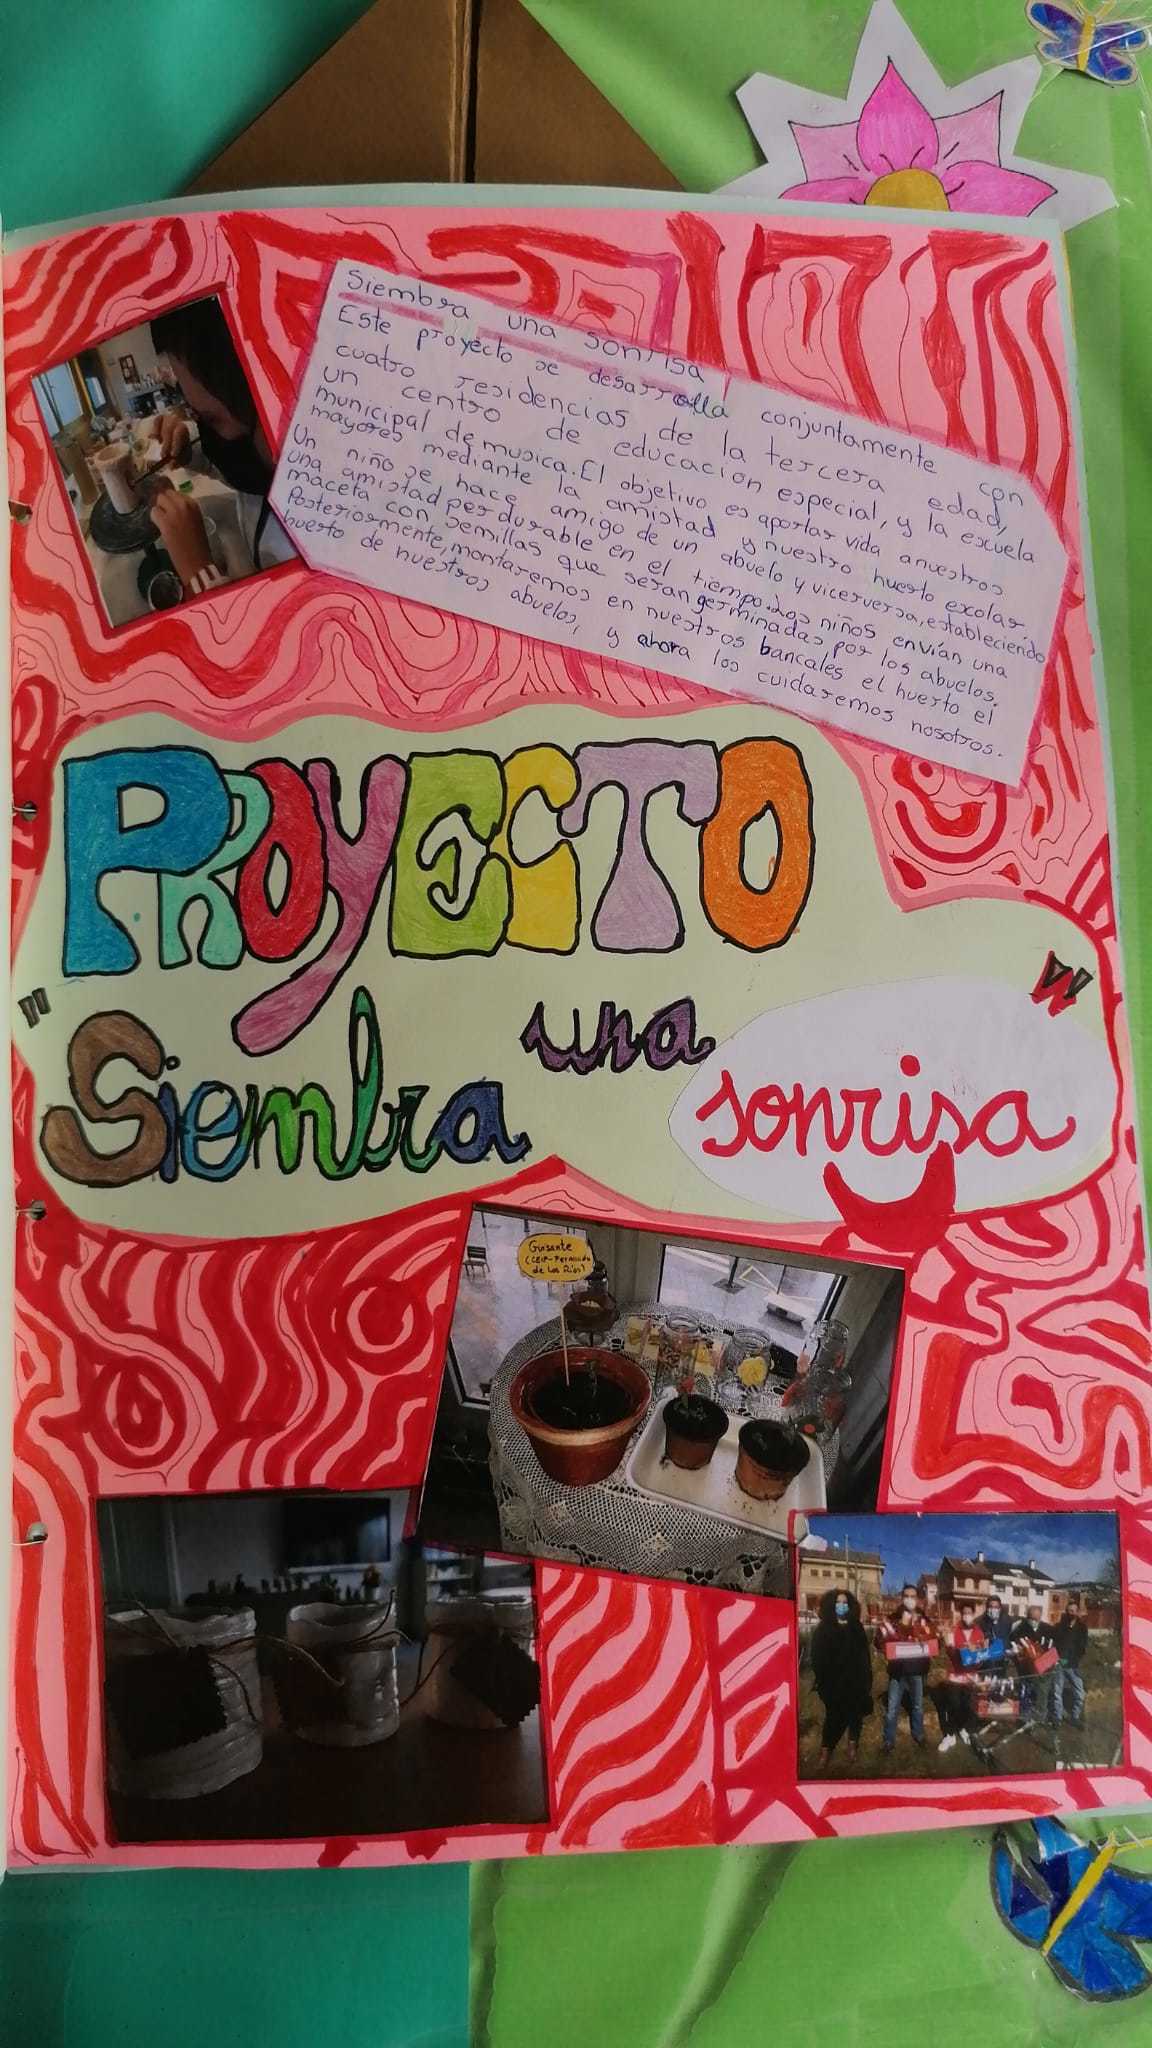 Siembra una sonrisa
Este proyecto se desarrolla conjuntamente con
cuatro residencias de la tercera edad,
un centro de educacion especial, y la escuela
municipal de musica. El objetivo es aportar vida a nuestros
mayores mediante la amistad y nuestro huerto escolar.
Un niño se hace amigo de un abuelo y viceversa, estableciendo
una amistad perdurable en el tiempo. Los niños envían una
maceta con semillas que seran germinadas, por los abuelos.
Posteriormente, montaremos en nuestros bancales el huerto el
huerto de nuestros abuelos, y ahora los cuidaremos nosotros.
PROYECTO
"Siembra una sonrisa"
Guisante
(CEIP-Fernando
de Los Ríos)